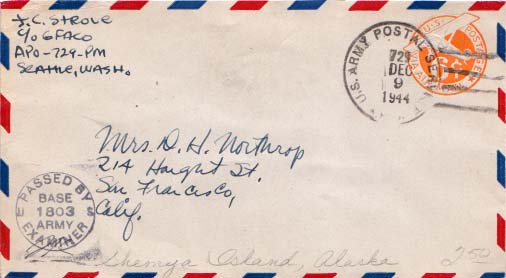 J.C. STROLE
C/O GFACO
APO-729-PM
SEATTLE, WASH.
U.S. ARMY POSTAL SERVICE
729
DEC
9
1944
U.S. POSTAGE
VIA AIR
6¢
Mrs. D. H. Northrop
214 Haight St.
San Francisco,
Calif.
PASSED BY
BASE
1803
ARMY
EXAMINER
Shemya Island, Alaska
2.50